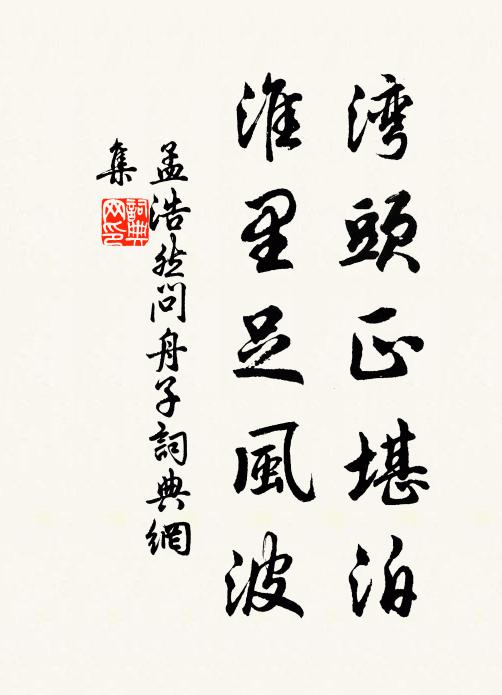 湾頭正堪泊
淮里足風波
孟浩然問舟子詞典網
集
詞典网印